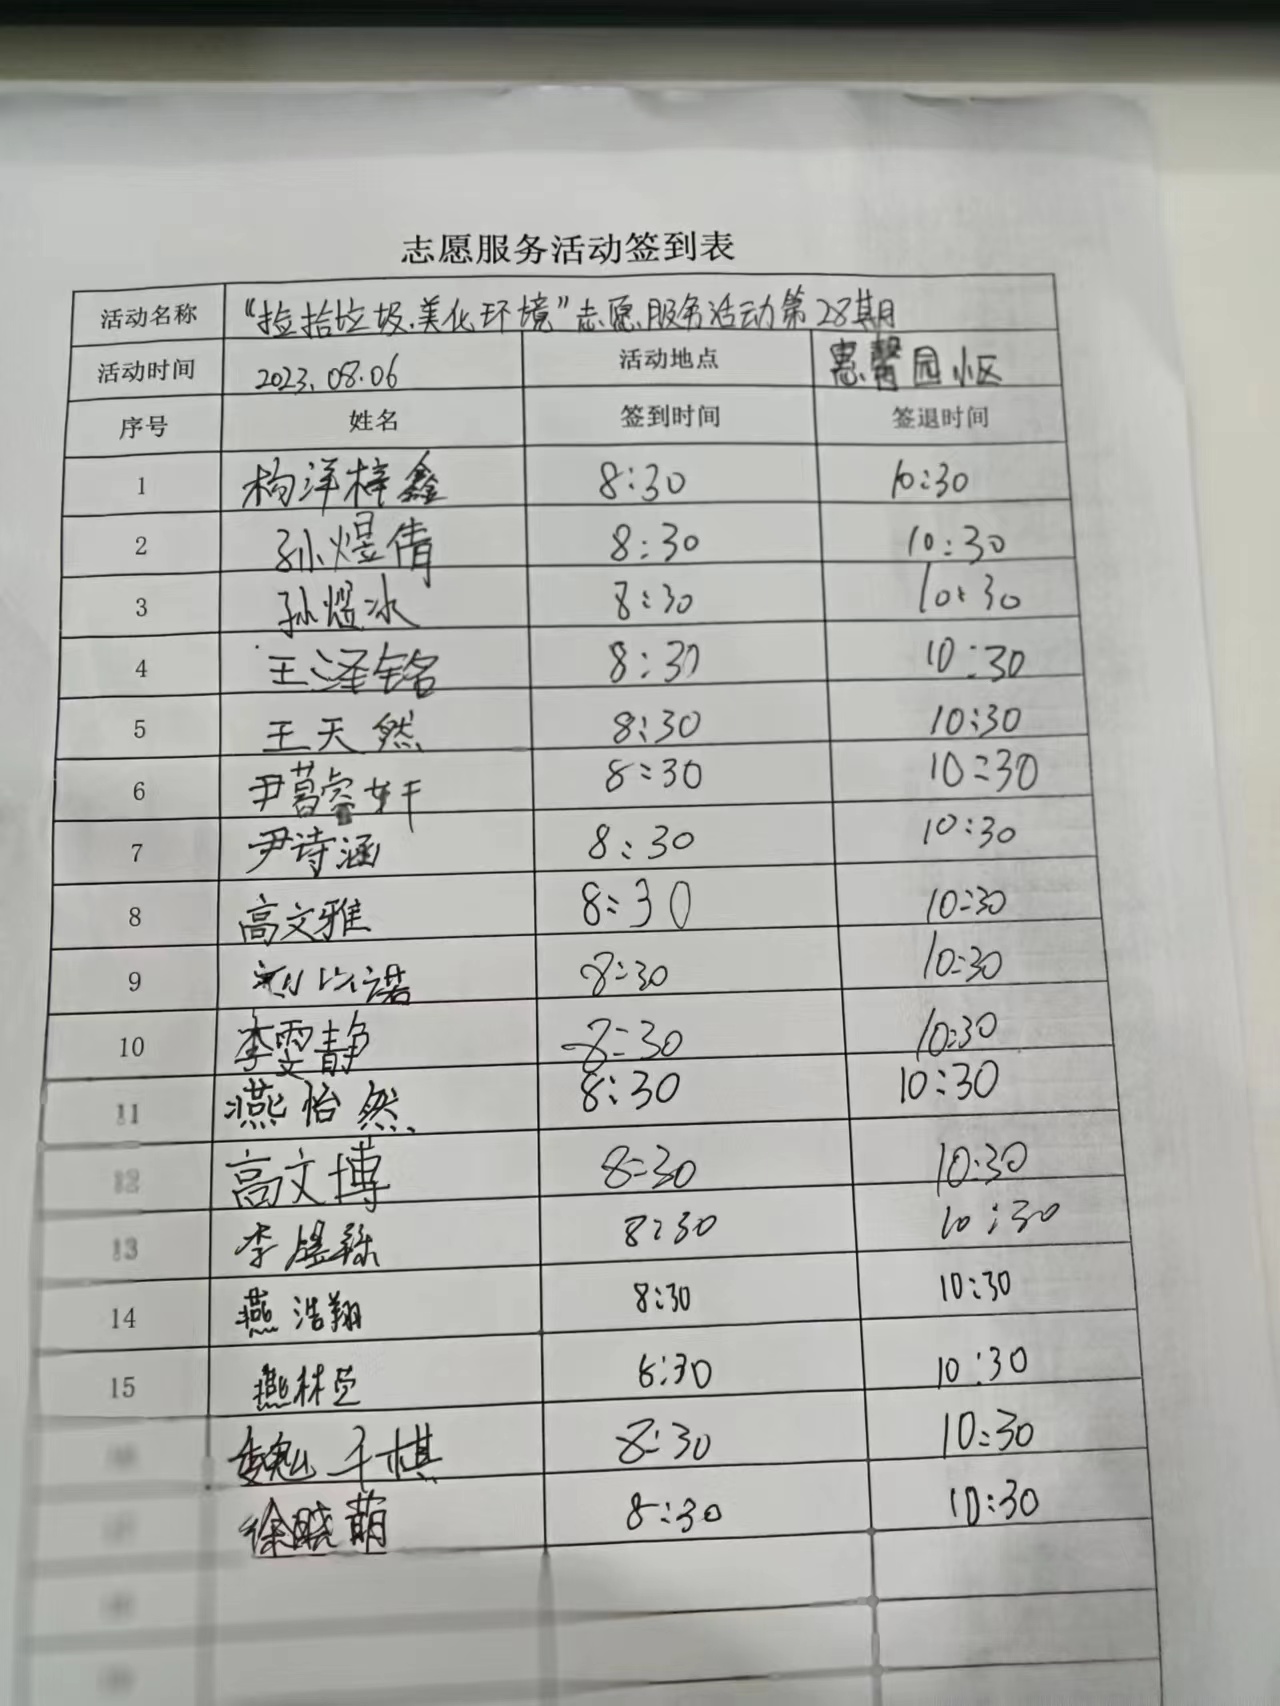 志愿服务活动签到表
活动名称 “捡拾垃圾.美化环境”志愿服务活动第28期
活动时间 2023.08.06 活动地点 惠馨园小区
序号 姓名 签到时间 签退时间
1 杨洋梓鑫 8:30 10:30
2 孙煜倩 8:30 10:30
3 孙煜冰 8:30 10:30
4 王泽铭 8:30 10:30
5 王天然 8:30 10:30
6 尹 8:30 10:30
7 尹诗涵 8:30 10:30
8 高文雅 8:30 10:30
9 刘以诺 8:30 10:30
10 李雯静 8:30 10:30
11 燕怡然 8:30 10:30
12 高文博 8:30 10:30
13 李 8:30 10:30
14 燕浩翔 8:30 10:30
15 燕林 8:30 10:30
魏千棋 8:30 10:30
徐晓萌 8:30 10:30